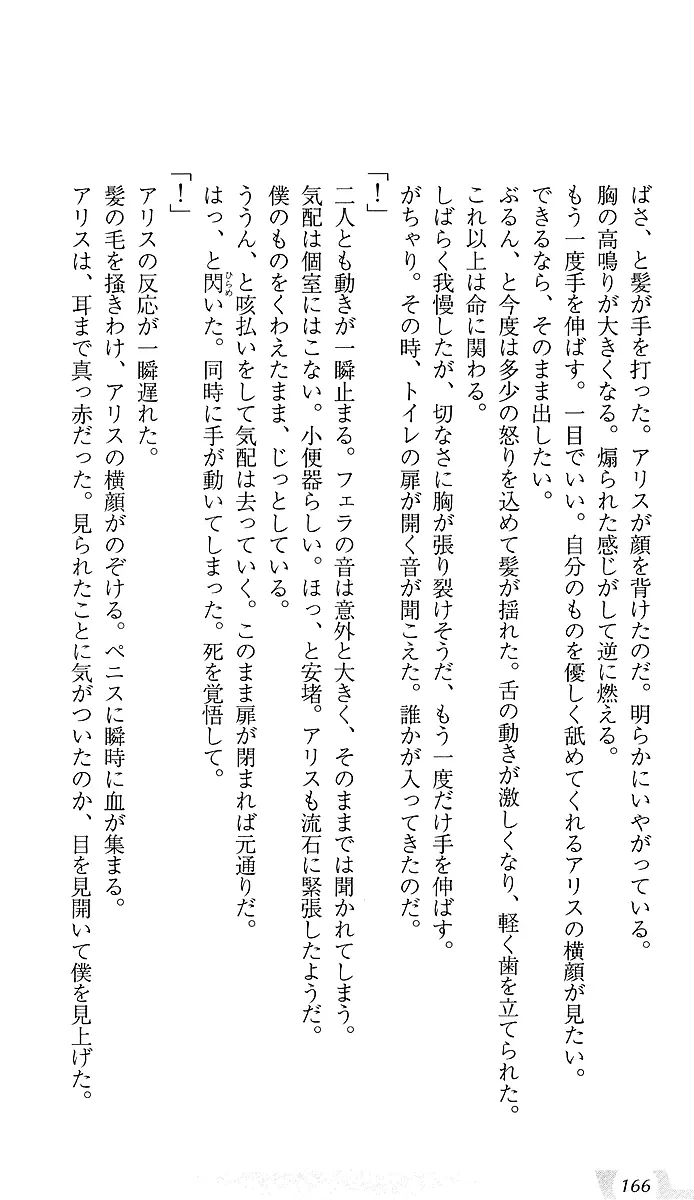 ばさ、と髪が手を打った。アリスが顔を背けたのだ。明らかにいやがっている。
胸の高鳴りが大きくなる。煽られた感じがして逆に燃える。
もう一度手を伸ばす。一目でいい。自分のものを優しく舐めてくれるアリスの横顔が見たい。
できるなら、そのまま出したい。
ぶるん、と今度は多少の怒りを込めて髪が揺れた。舌の動きが激しくなり、軽く歯を立てられた。
これ以上は命に関わる。
しばらく我慢したが、切なさに胸が張り裂けそうだ、もう一度だけ手を伸ばす。
がちゃり。その時、トイレの扉が開く音が聞こえた。誰かが入ってきたのだ。
「！」
二人とも動きが一瞬止まる。フェラの音は意外と大きく、そのままでは聞かれてしまう。
気配は個室にはこない。小便器らしい。ほっ、と安堵。アリスも流石に緊張したようだ。
僕のものをくわえたまま、じっとしている。
ううん、と咳払いをして気配は去っていく。このまま扉が閉まれば元通りだ。
はっ、と閃いた。同時に手が動いてしまった。死を覚悟して。
ひらめ
「！」
アリスの反応が一瞬遅れた。
髪の毛を掻きわけ、アリスの横顔がのぞける。ペニスに瞬時に血が集まる。
アリスは、耳まで真っ赤だった。見られたことに気がついたのか、目を見開いて僕を見上げた。
166